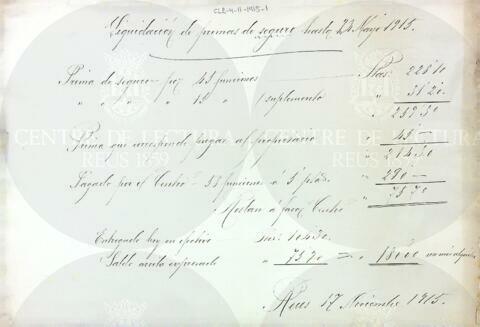 CL2-4-11-1915-1
Liquidación de primas de seguro hasta 23 Mayo 1915.
Prima de seguro por 45 funciones Ptas. 228'10
" " " " 15 " (suplemento " 31'20
" 259'30
Prima que corresponde pagar al propietario " 45 —
" 214'30
Pagado por el Centro 58 funciones á 5 ptas. " 290 —
Restan á favor Centro " 75'70
Entregado hoy en efectivo Ptas. 104'30
Saldo 75'70 = " 180'00
Reus 17 Noviembre 1915.
CENTRE DE LECTURA
REUS 1859
CENTRE DE LECTURA
REUS 1859